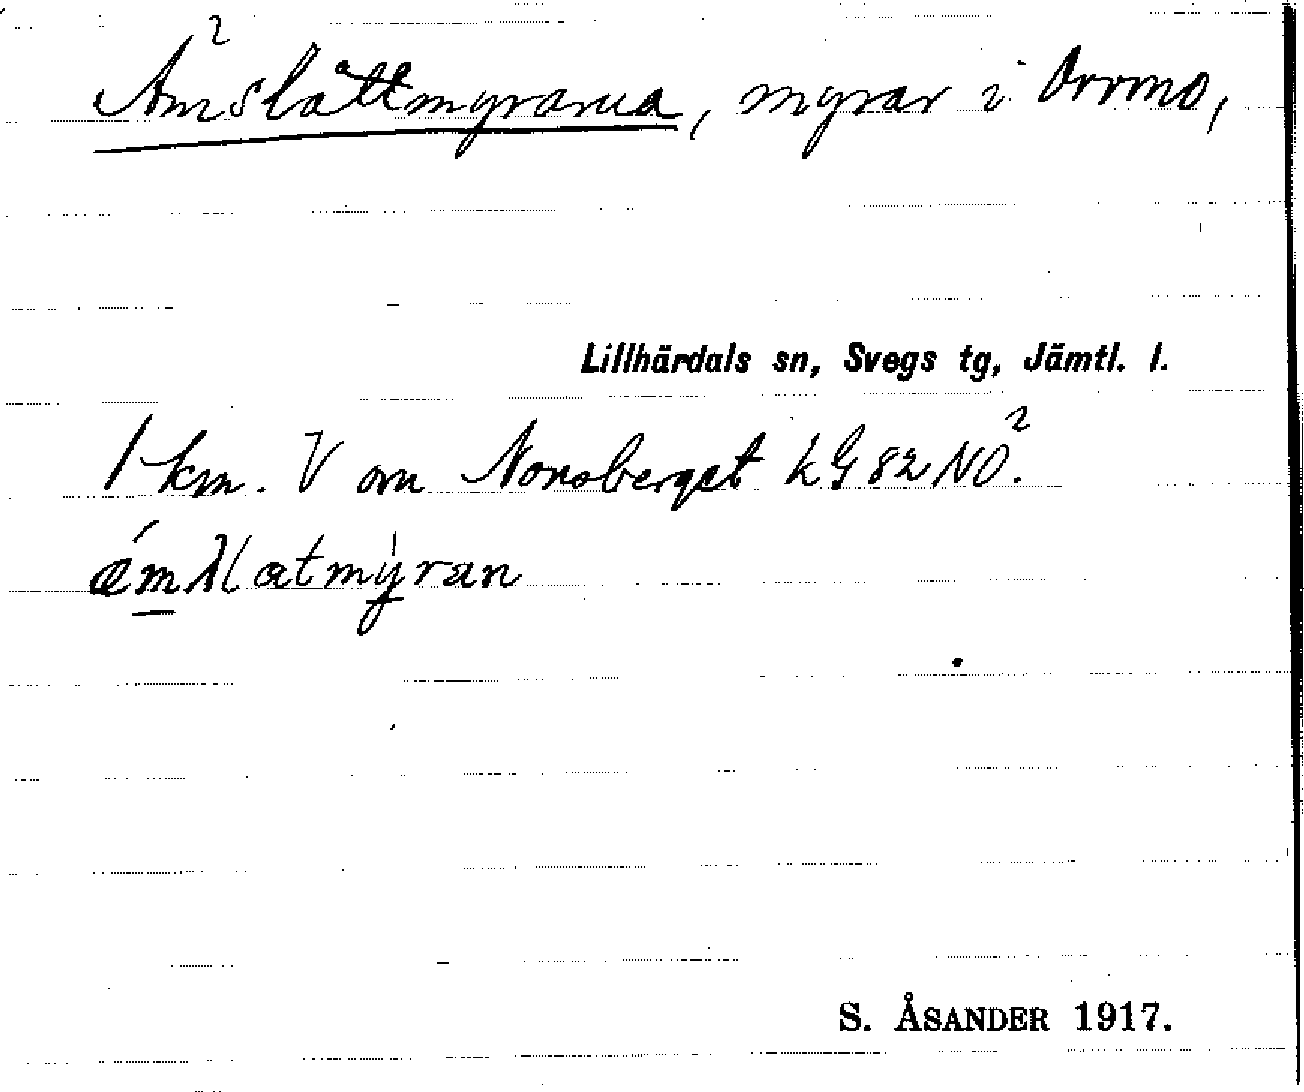 Åmslåttmyrarna, myrar i Orrmo,
Lillhärdals sn, Svegs tg, Jämtl. l.
1 km. V om Nonsberget kG82NO².
S. ÅSANDER 1917.